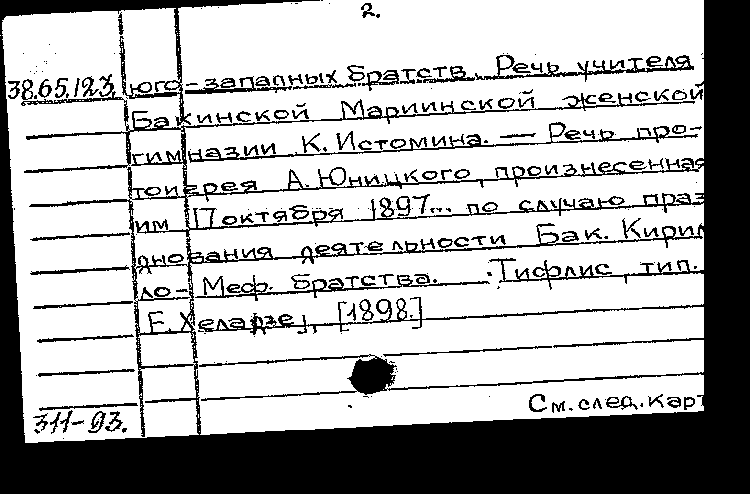 2.
38.65.123. юго-западных братств. Речь учителя
Бакинской Мариинской женской
гимназии К. Истомина. — Речь про-
тоиерея А. Юницкого, произнесенная
им 17 октября 1897... по случаю праз
днования деятельности Бак. Кирил
ло-Меф. братства. Тифлис, тип.
Е. Хеладзе, [1898.]
См. след. карт
311-93.